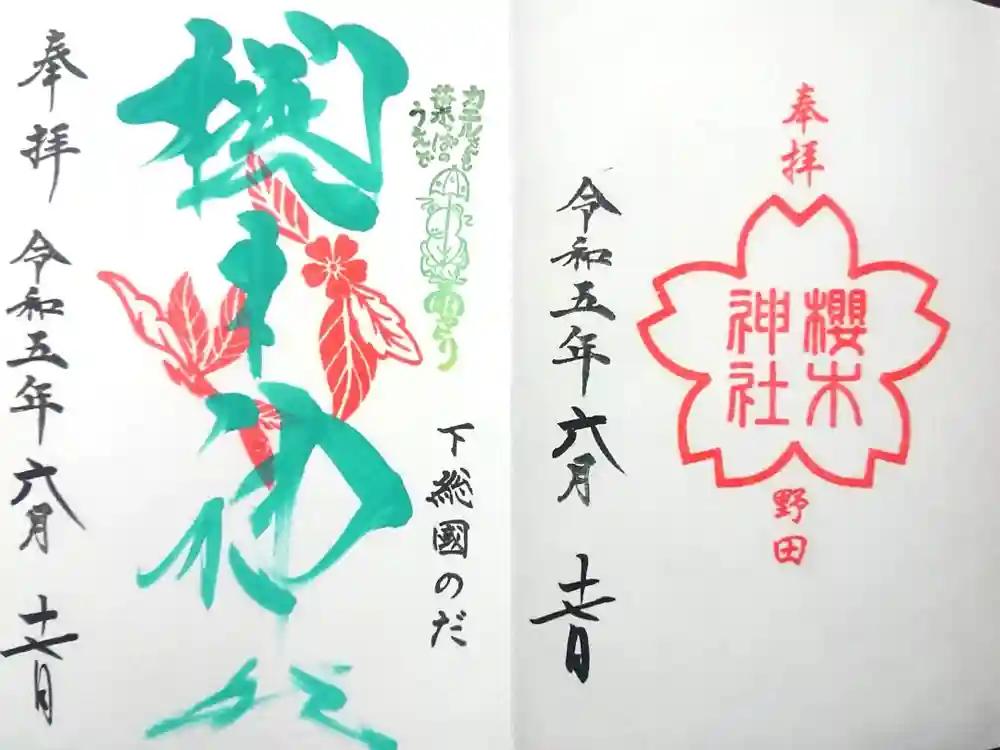 カエルさんも
葉っぱの
うえで
雨やどり
下総國のだ
櫻木神社
奉拝
令和五年六月十七日
奉拝
櫻木
神社
野田
令和五年六月十七日